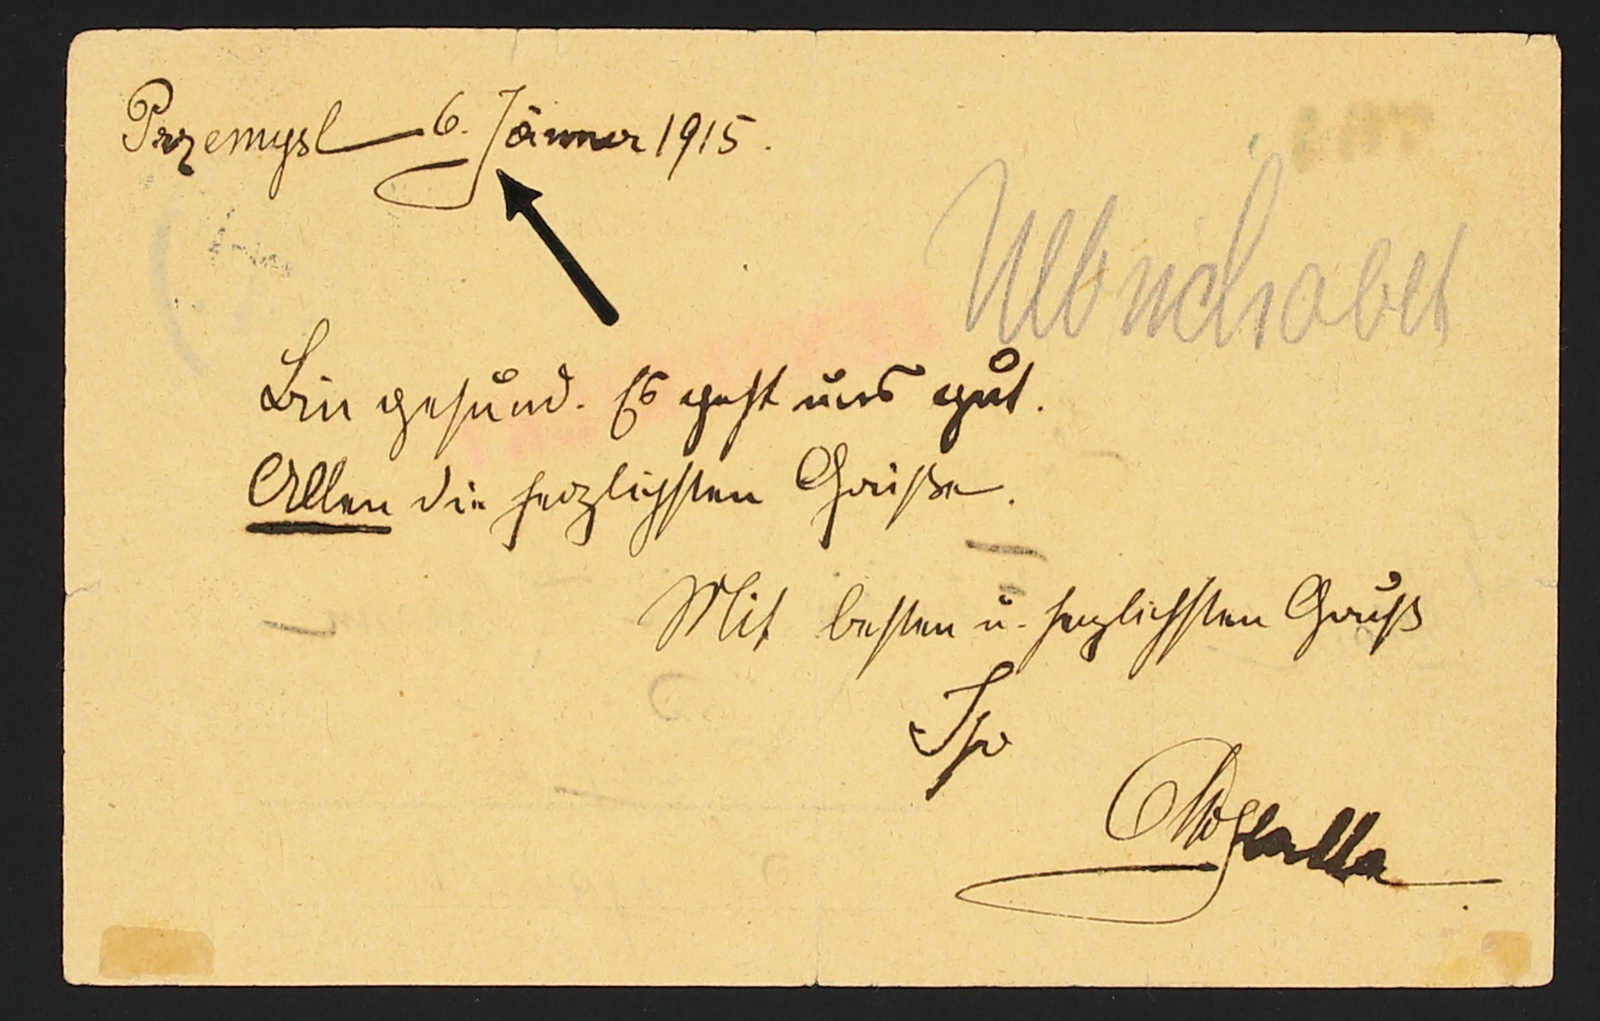 Przemysl 6. Jänner 1915.
Bin gesund. Es geht uns gut.
Allen die herzlichsten Grüße.
Mit besten u. herzlichsten Gruß
Ihr